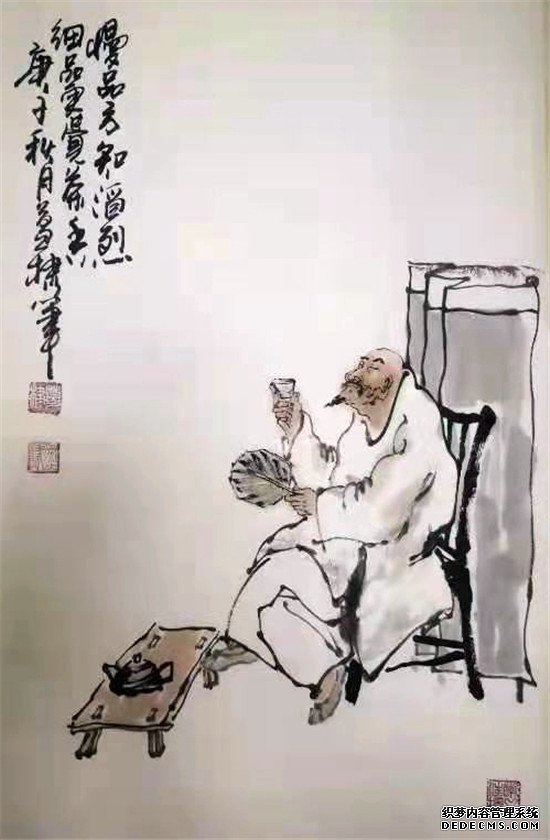 慢品方知烈
细品更觉茶香
庚子秋月笔
织梦内容管理系统
DEDECMS.COM